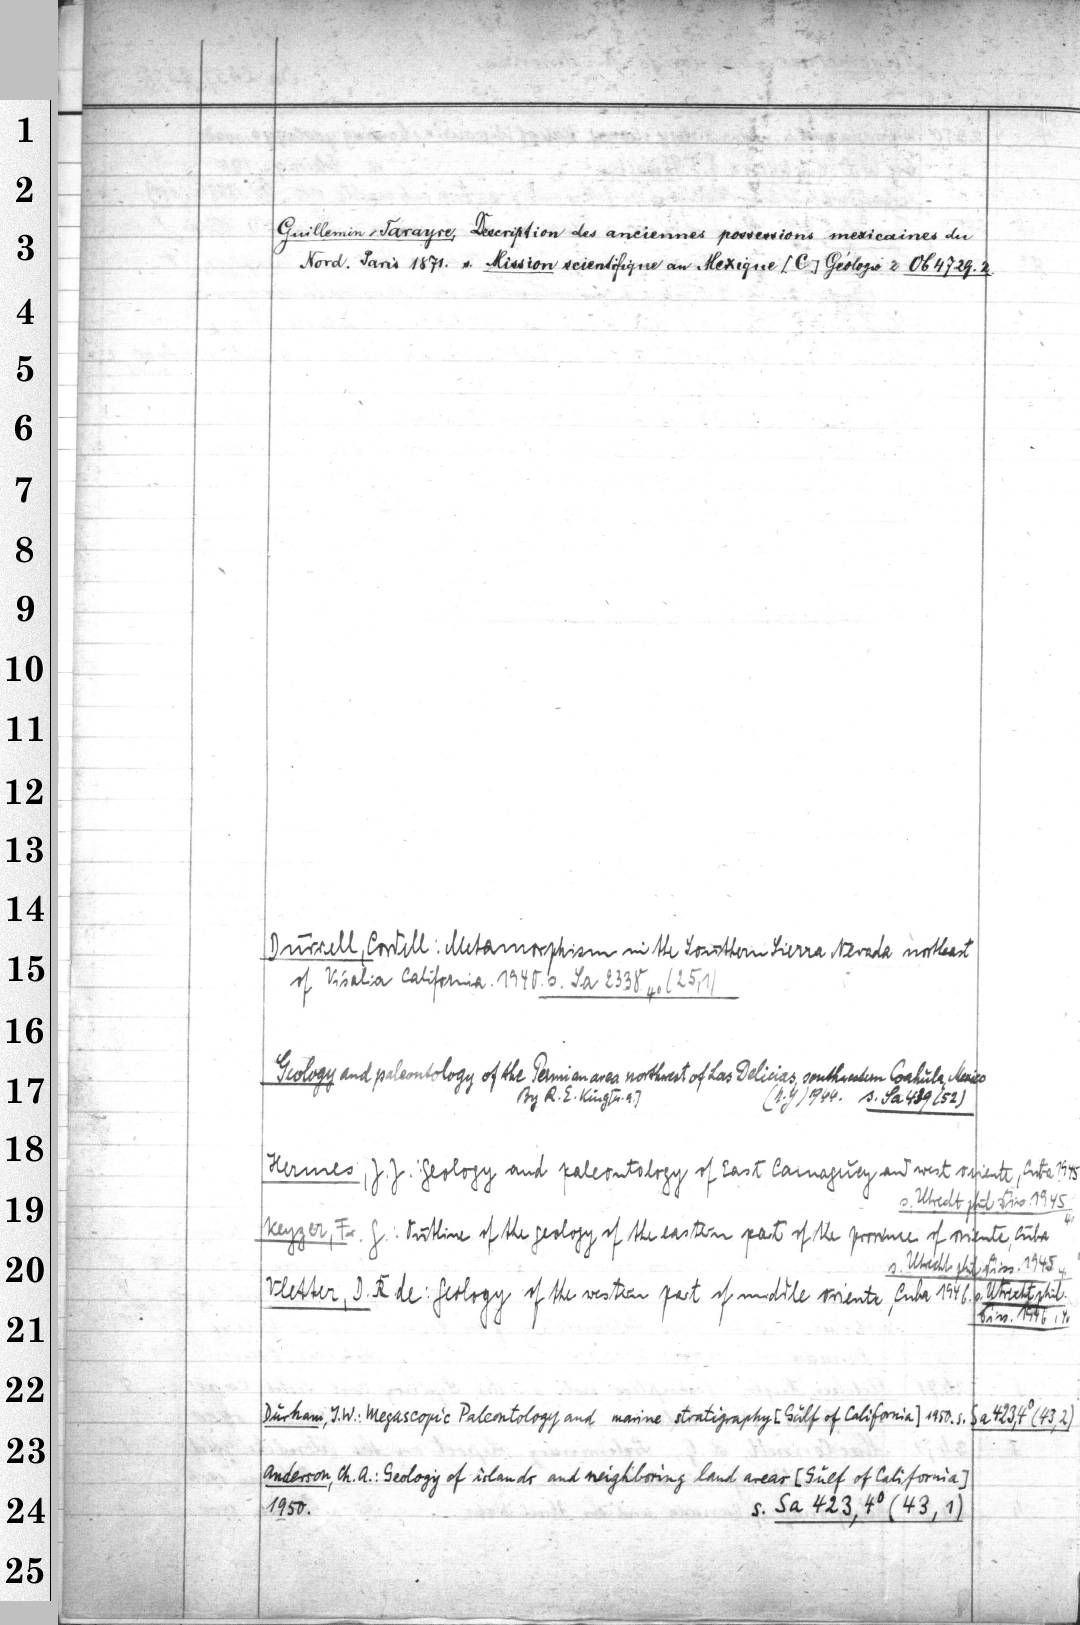 1
2
3
4
5
6
7
8
9
10
11
12
13
14
15
16
17
18
19
20
21
22
23
24
25
Guillemin-Tarayre, Description des anciennes possessions mexicaines du
Nord. Paris 1871. s. Mission scientifique au Mexique [C] Géologie 2 Ob 4729.2
Durrell, Cordell: Metamorphism in the Southern Sierra Nevada northeast
of Visalia California. 1940. s. Sa 2338 4° (25,1)
Geology and paleontology of the Permian area northwest of Las Delicias, southwestern Coahuila, Mexico
By R. E. King [u.a.] (N.Y.) 1944. s. Sa 489 (52)
Hermes, J. J.: Geology and paleontology of East Camaguey and west oriente, Cuba 1945
s. Utrecht phil Diss 1945 4°
Keyzer, Fr. G.: Outline of the geology of the eastern part of the province of oriente, Cuba
s. Utrecht phil Diss. 1945 4°
Vletter, D. R de: Geology of the western part of middle oriente, Cuba 1946. s. Utrecht phil.
Diss. 1946, 4°
Durham, J.W.: Megascopic Paleontology and marine stratigraphy [Gulf of California] 1950. s. Sa 423,4° (43,2)
Anderson, Ch. A.: Geology of islands and neighboring land areas [Gulf of California]
1950. s. Sa 423, 4° (43, 1)